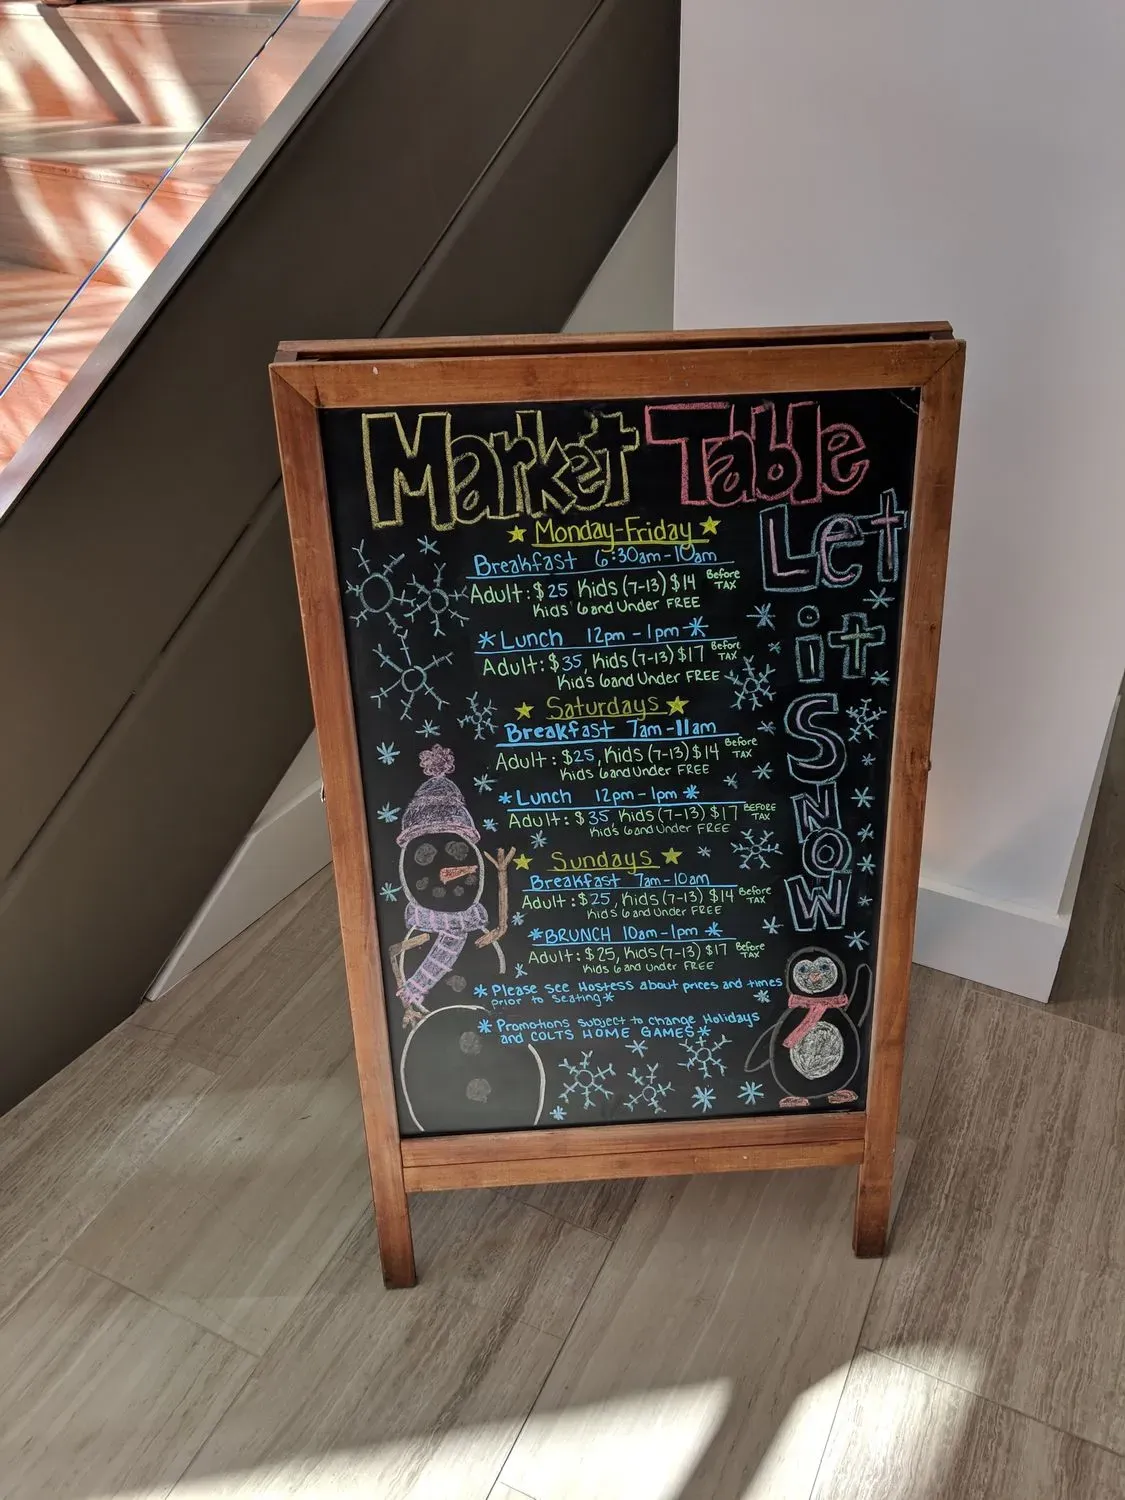 Market Table
Let
it
SNOW
Monday-Friday
Breakfast 6:30am-10am
Adult: $25 Kids (7-13) $14 Before TAX
Kids 6 and Under FREE
*Lunch 12pm-1pm*
Adult: $35, Kids (7-13) $17 Before TAX
Kids 6 and Under FREE
Saturdays
Breakfast 7am-11am
Adult: $25, Kids (7-13) $14 Before TAX
Kids 6 and Under FREE
*Lunch 12pm-1pm*
Adult: $35, Kids (7-13) $17 BEFORE TAX
Kid's 6 and Under FREE
Sundays
Breakfast 7am-10am
Adult: $25, Kids (7-13) $14 Before TAX
Kids 6 and Under FREE
*BRUNCH 10am-1pm*
Adult: $25, Kids (7-13) $17 Before TAX
Kids 6 and Under FREE
*Please see Hostess about prices and times
prior to seating*
*Promotions subject to change Holidays
and COLTS HOME GAMES*